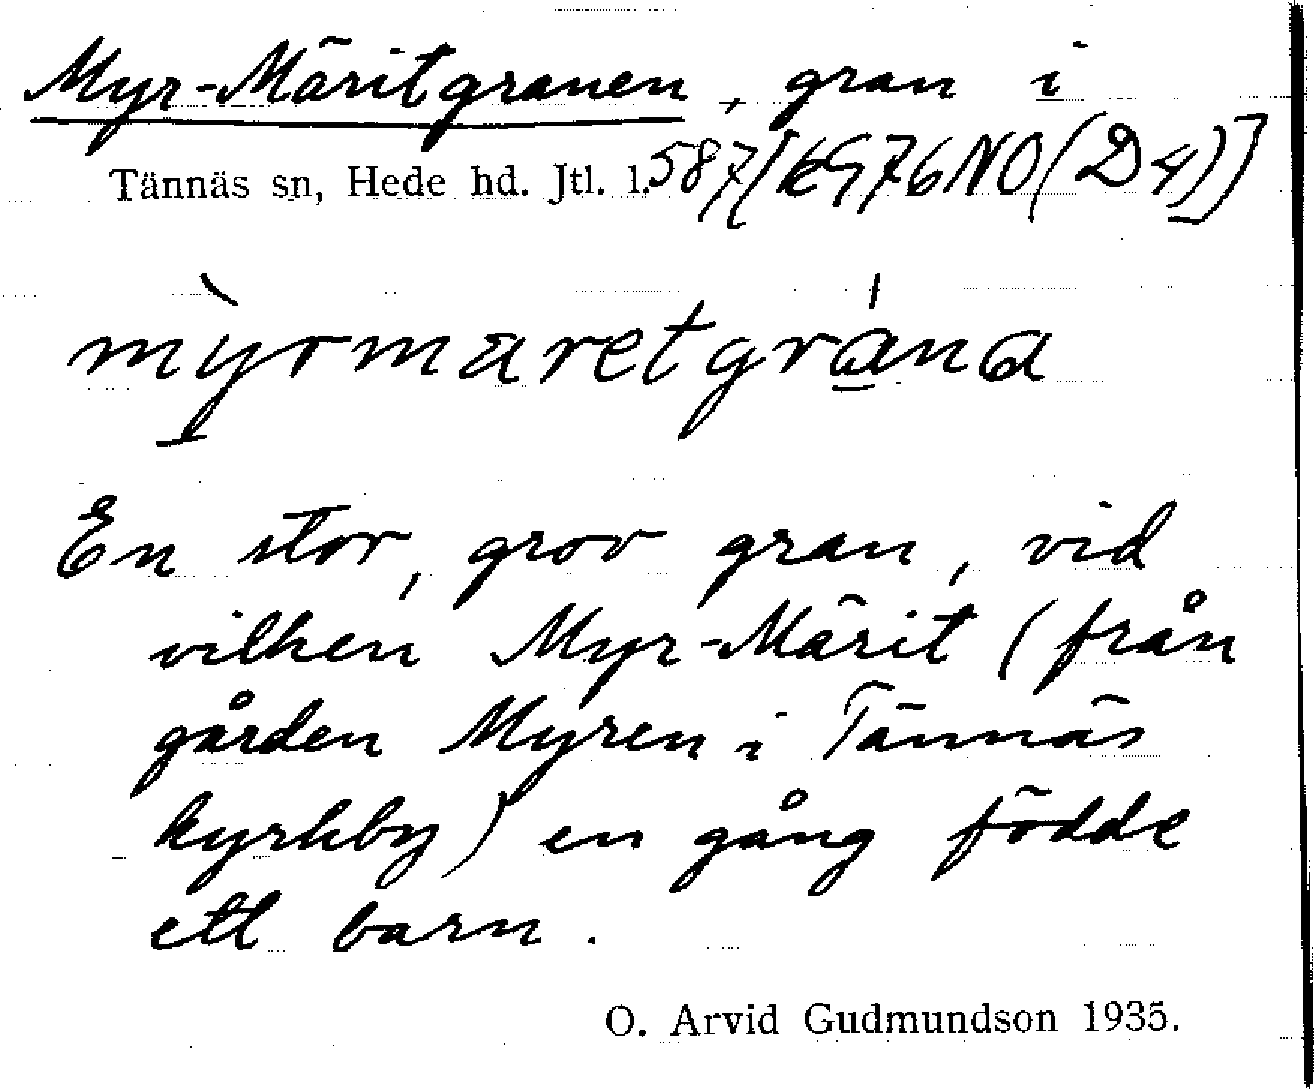 Myr-Märitgranen, gran i
Tännäs sn, Hede hd. Jtl. l. 587 [kG76NO(D4)]
mỳrmaretgrána
En stor, grov gran, vid
vilken Myr-Märit (från
gården Myren i Tännäs
kyrkby) en gång födde
ett barn.
O. Arvid Gudmundson 1935.